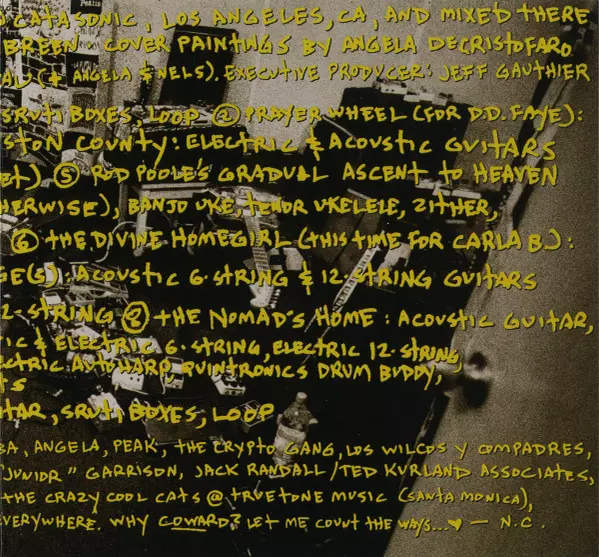 CATASONIC, LOS ANGELES, CA, AND MIXED THERE
BREEN. COVER PAINTINGS BY ANGELA DECRISTOFARO
AL (+ ANGELA & NELS). EXECUTIVE PRODUCER: JEFF GAUTHIER
SRUTI BOXES, LOOP ② PRAYER WHEEL (FOR D.D. FAYE):
STON COUNTY: ELECTRIC & ACOUSTIC GUITARS
ET) ⑤ ROD POOLE'S GRADUAL ASCENT TO HEAVEN
HERWISE), BANJO UKE, TENOR UKELELE, ZITHER,
⑥ THE DIVINE HOMEGIRL (THIS TIME FOR CARLA B.):
GE(S): ACOUSTIC 6-STRING & 12-STRING GUITARS
2-STRING ⑧ THE NOMAD'S HOME: ACOUSTIC GUITAR,
IC & ELECTRIC 6-STRING, ELECTRIC 12-STRING,
ECTRIC AUTOHARP, QUINTRONICS DRUM BUDDY,
TS
ITAR, SRUTI BOXES, LOOP
BA, ANGELA, PEAK, THE CRYPTO GANG, LOS WILCOS Y COMPADRES,
"JUNIOR" GARRISON, JACK RANDALL/TED KURLAND ASSOCIATES,
THE CRAZY COOL CATS @ TRUETONE MUSIC (SANTA MONICA),
VERYWHERE. WHY COWARD? LET ME COUNT THE WAYS...♥ — N.C.